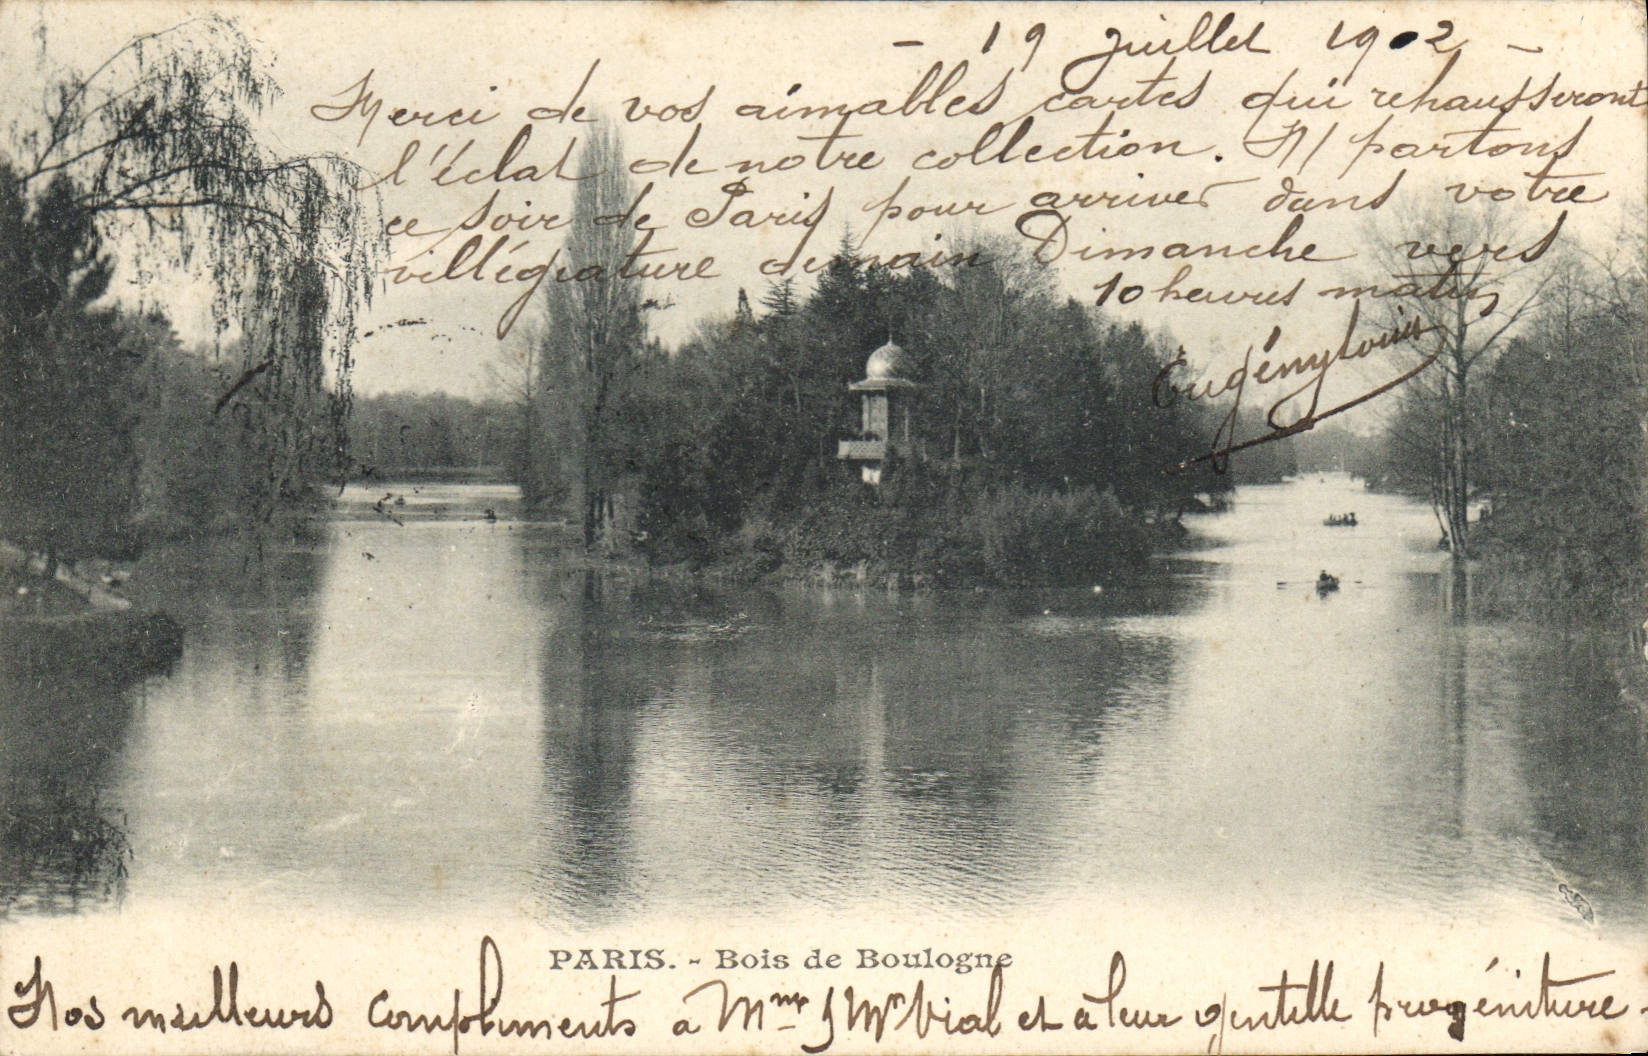 - 19 Juillet 1902 -
Merci de vos aimables cartes qui rehausseront
l'éclat de notre collection. N/ partons
ce soir de Paris pour arriver dans votre
villégiature demain Dimanche vers
10 heures matin
PARIS. - Bois de Boulogne
Nos meilleurs compliments à Mme & Mr Vial et à leur gentille progéniture.